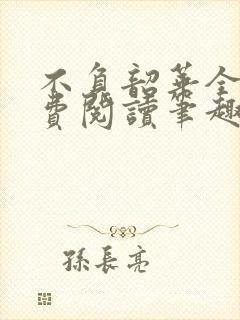 不負韶華全
費閱讀筆趣
孫長亮